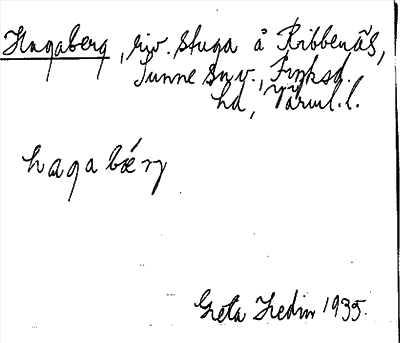 Hagaberg, riv. stuga å Ribbenäs,
Sunne sn v., Fryksd.
hd, Värml. l.
hagabærj
Greta Hedin 1935.